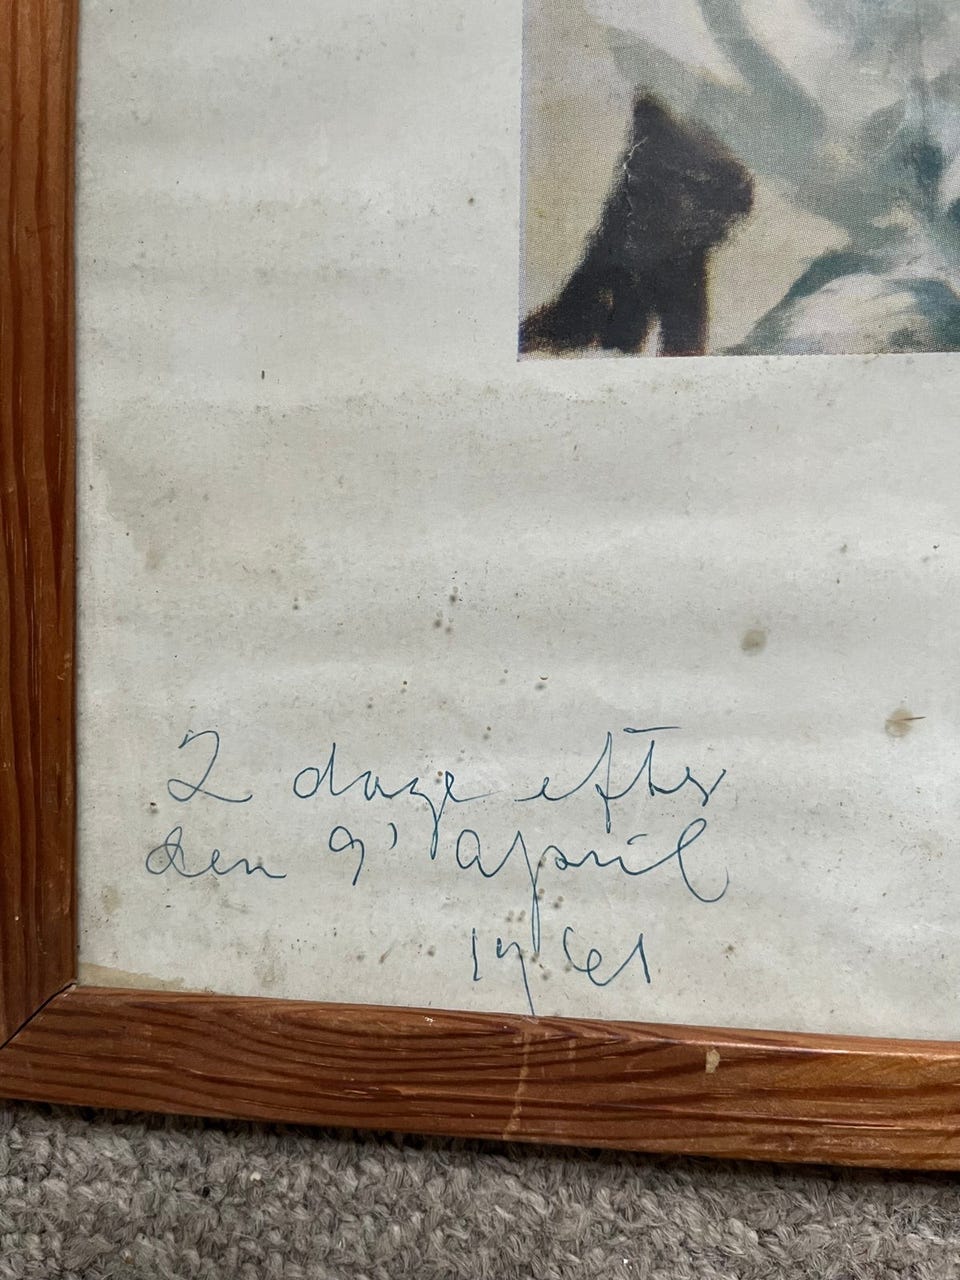 2 dage efter
den 9' april
1961